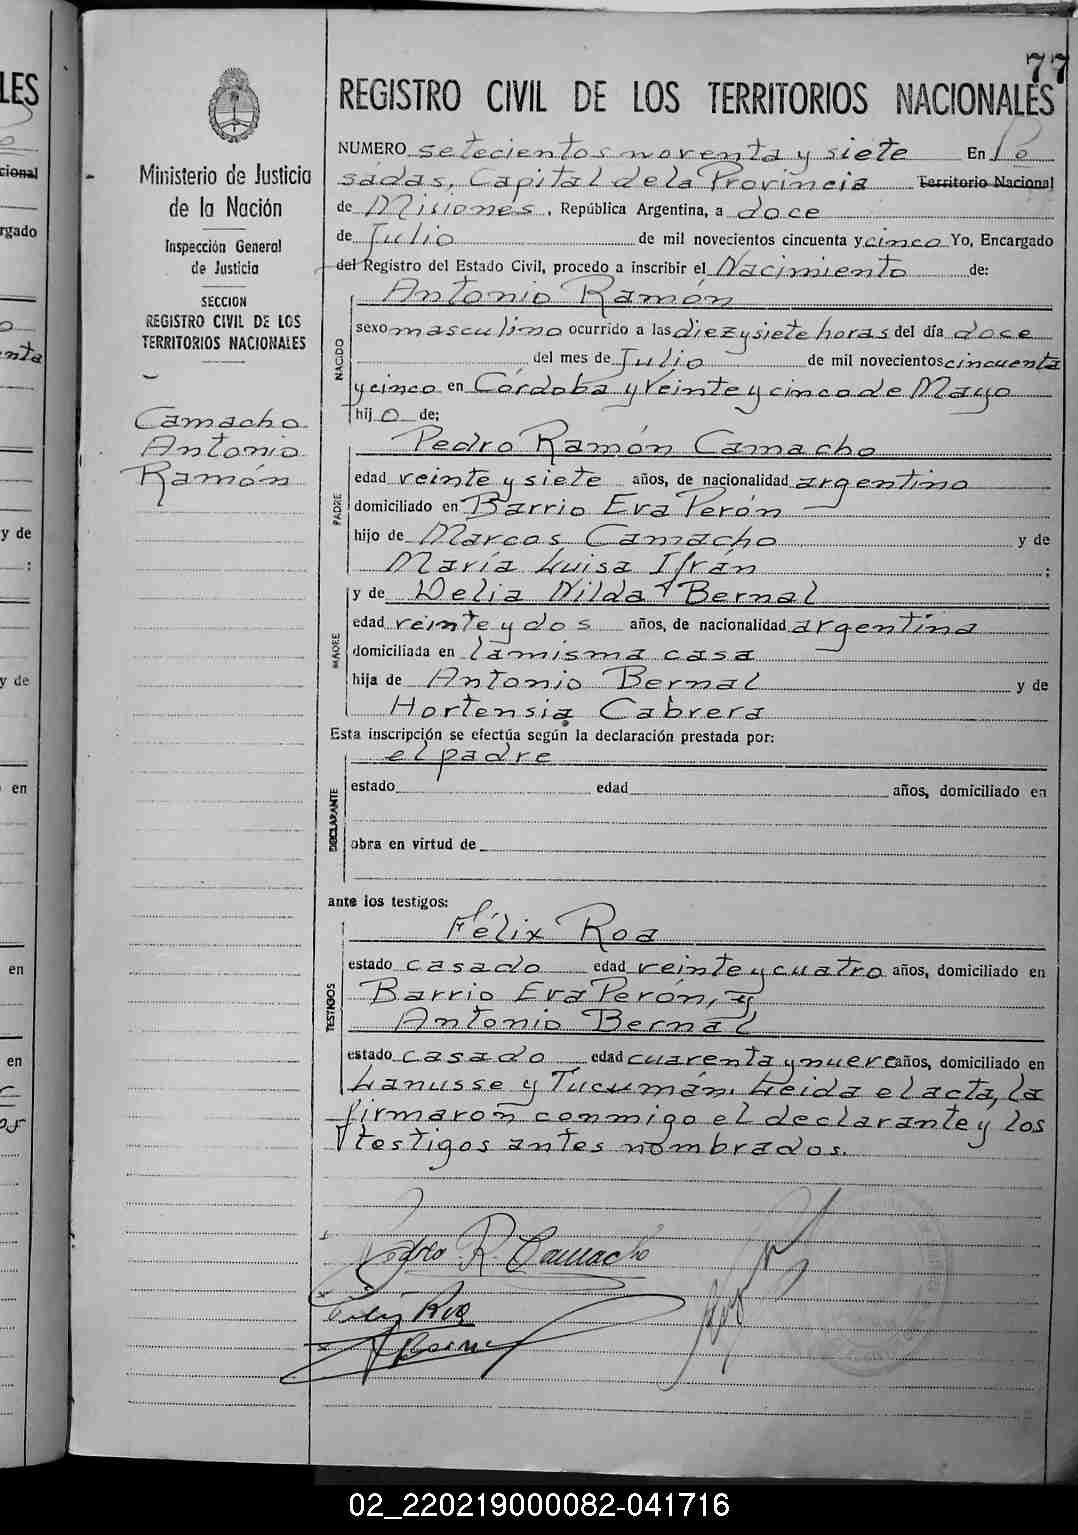 77
REGISTRO CIVIL DE LOS TERRITORIOS NACIONALES
Ministerio de Justicia
de la Nación
Inspección General
de Justicia
SECCION
REGISTRO CIVIL DE LOS
TERRITORIOS NACIONALES
Camacho
Antonio
Ramón
NUMERO setecientos noventa y siete En Po
sadas, Capital de la Provincia Territorio Nacional
de Misiones, República Argentina, a doce
de Julio de mil novecientos cincuenta y cinco Yo, Encargado
del Registro del Estado Civil, procedo a inscribir el Nacimiento de:
Antonio Ramón
NACIDO
sexo masculino ocurrido a las diez y siete horas del día doce
del mes de Julio de mil novecientos cincuenta
y cinco en Córdoba y Veinte y cinco de Mayo
hijo de:
Pedro Ramón Camacho
PADRE
edad veinte y siete años, de nacionalidad argentino
domiciliado en Barrio Eva Perón
hijo de Marcos Camacho y de
María Luisa Ifrán ;
y de Delia Nilda Bernal
MADRE
edad veinte y dos años, de nacionalidad argentina
domiciliada en la misma casa
hija de Antonio Bernal y de
Hortensia Cabrera
Esta inscripción se efectúa según la declaración prestada por:
el padre
DECLARANTE
estado edad años, domiciliado en
obra en virtud de
ante los testigos:
Félix Roa
TESTIGOS
estado casado edad veinte y cuatro años, domiciliado en
Barrio Eva Perón, y
Antonio Bernal
estado casado edad cuarenta y nueve años, domiciliado en
Lanusse y Tucumán. Leida el acta, la
firmaron conmigo el declarante y los
testigos antes nombrados.
Pedro R. Camacho
Felix Roa
ABernal
LES
cional
rgado
enta
y de
:
y de
en
en
en
02_220219000082-041716